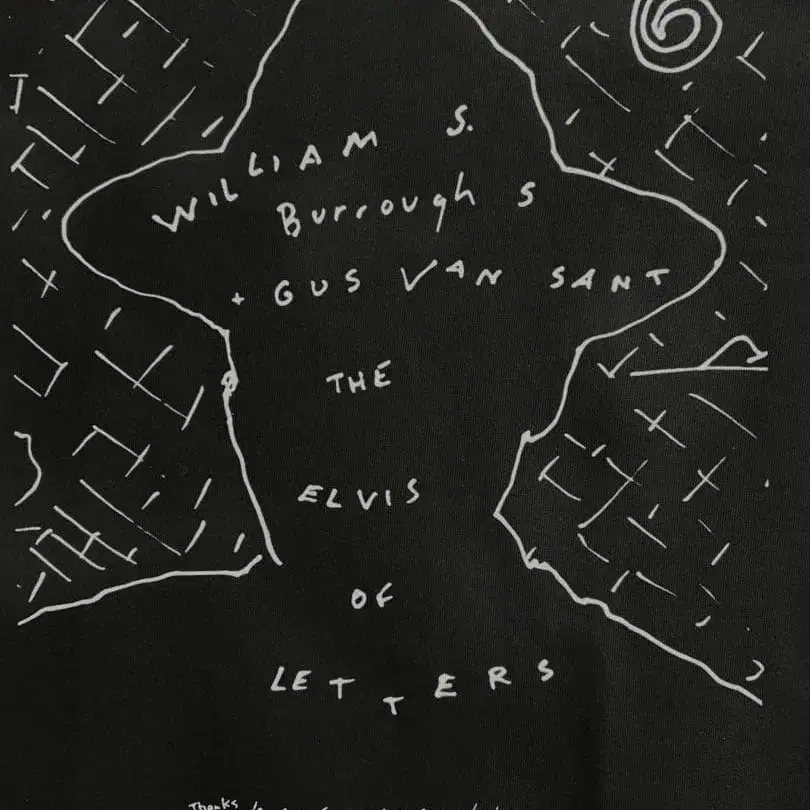 WILLIAM S.
Burroughs
+ GUS VAN SANT
THE
ELVIS
OF
LETTERS
Thanks